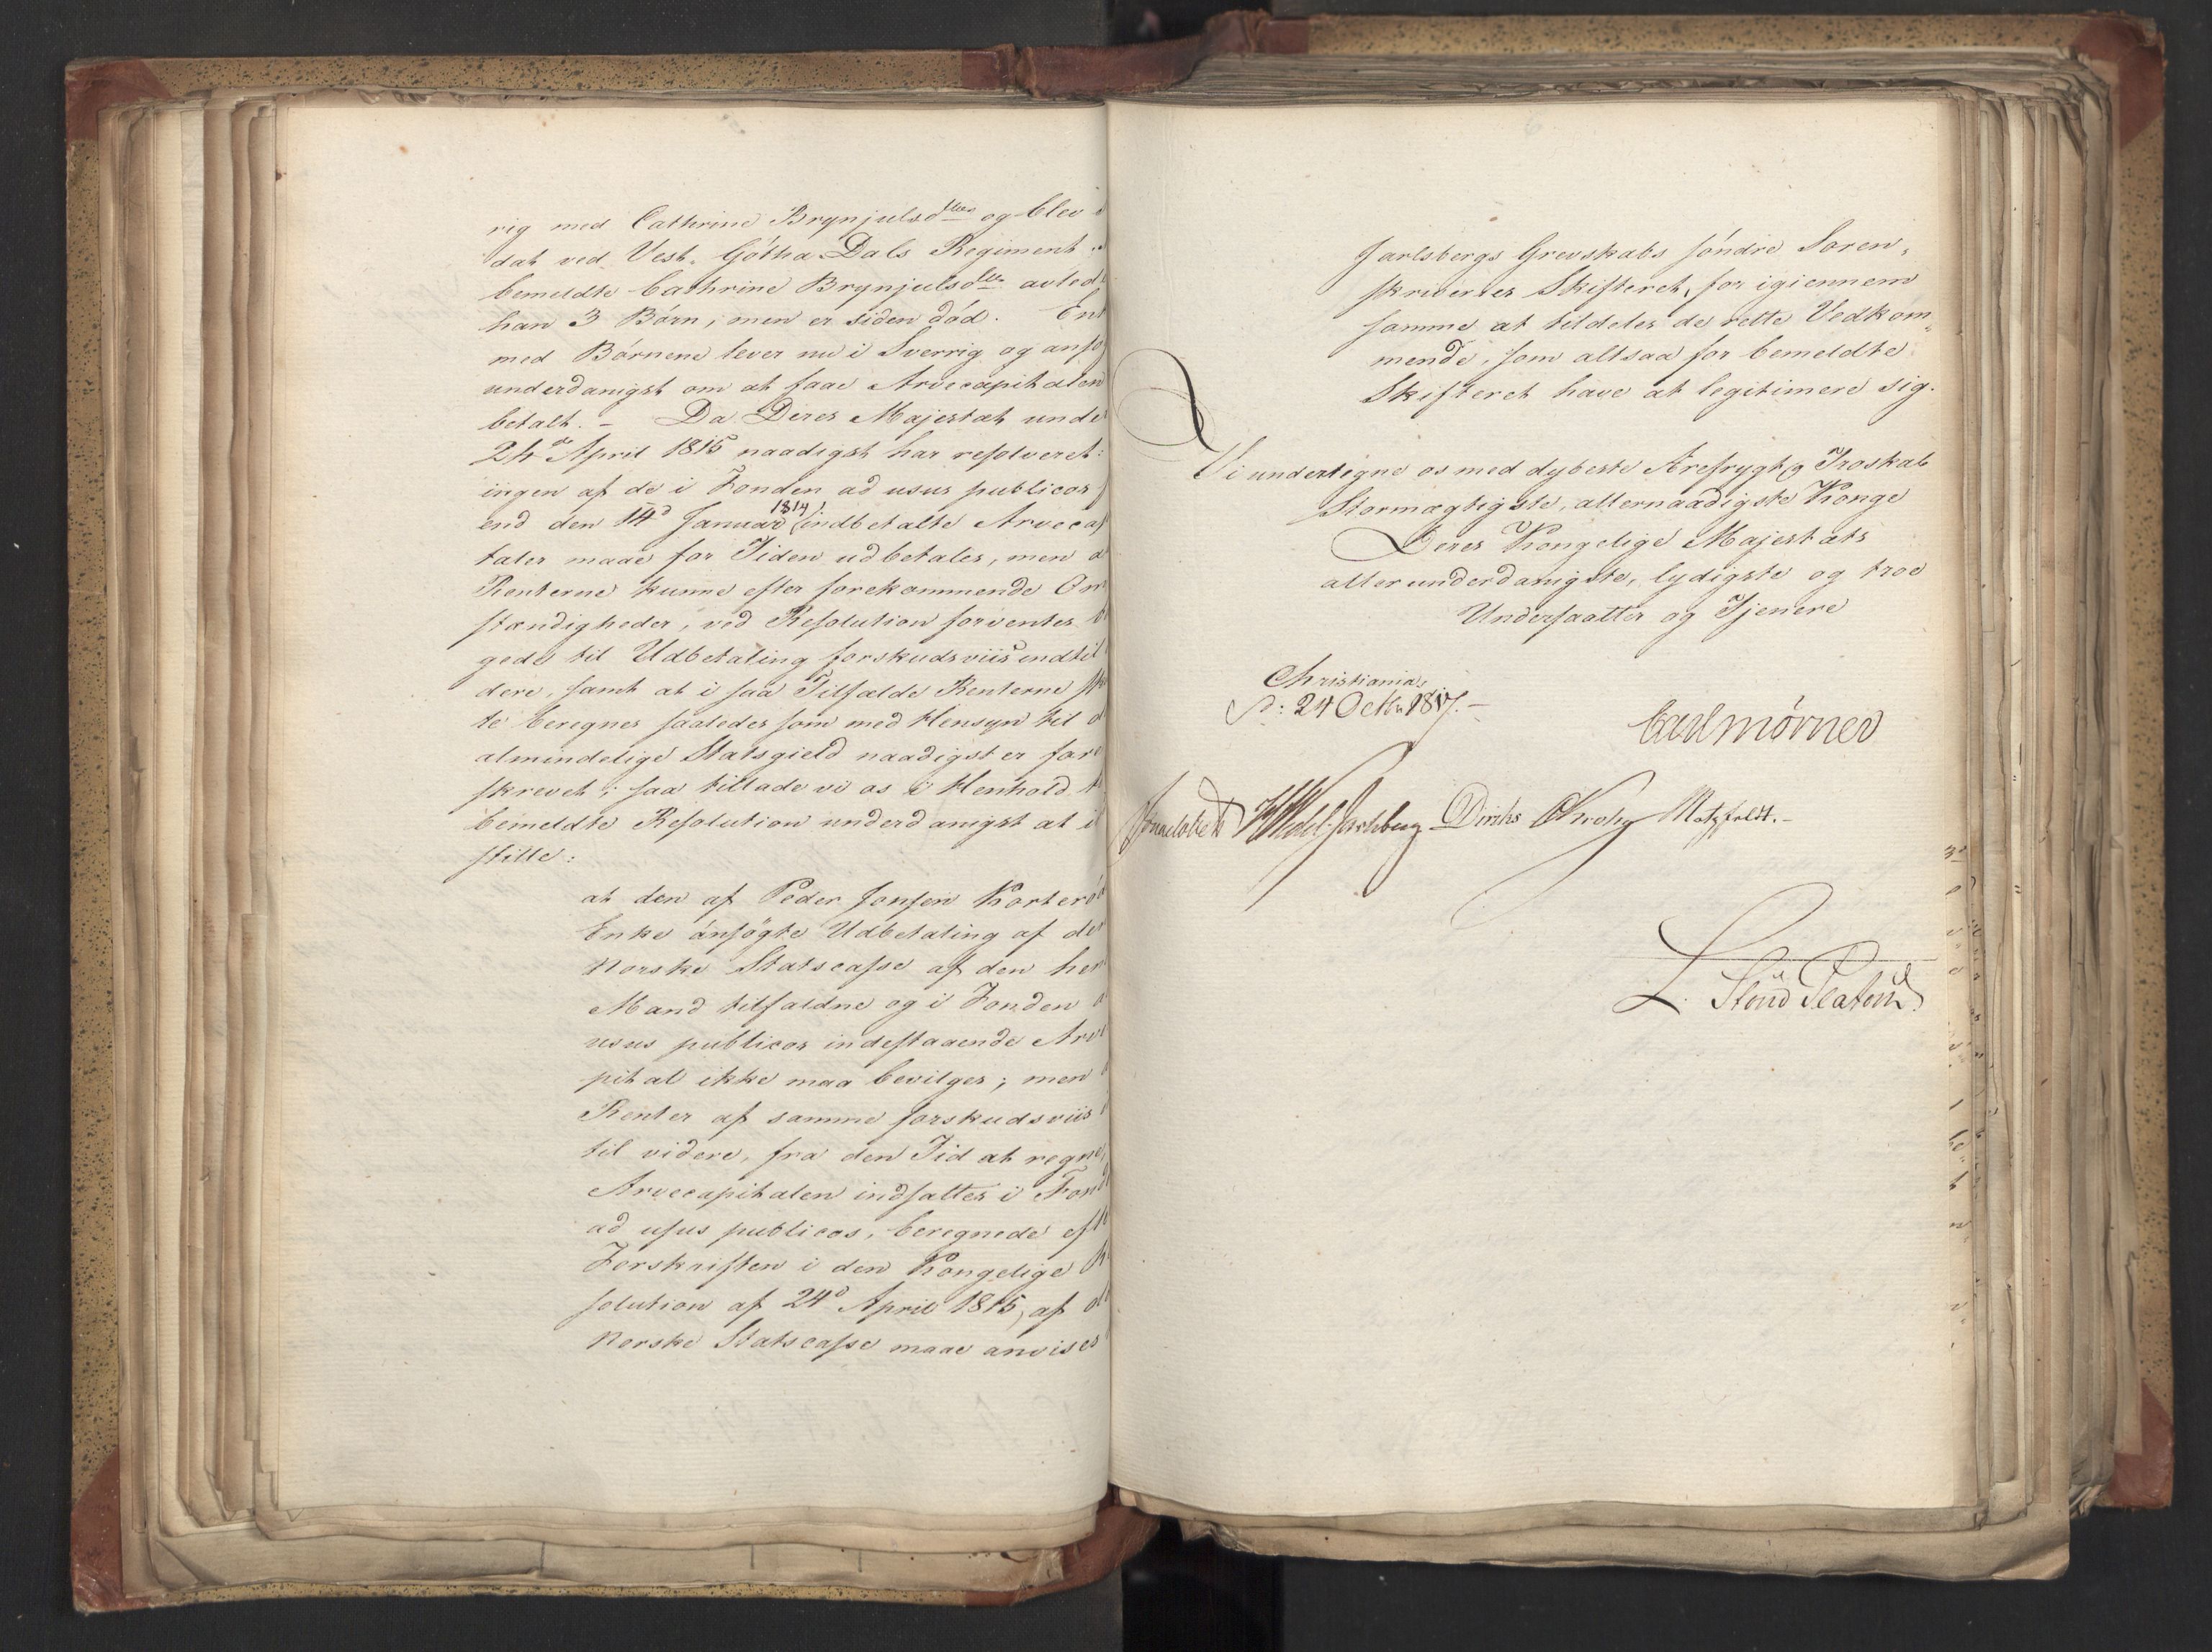 rig med Cathrine Brynjulsdtter og blev
dat ved Vest-Gôtha Dals Regiment.
bemeldte Cathrine Brynjulsdtr avled
han 3 Børn, men er siden død. En
med Børnene lever nu i Sverrig og ansø
underdanigst om at faae Arvecapitalen
betalt. – Da Deres Majestæt unde
24de April 1815 naadigst har resolveret:
ingen af de i Fonden ad usus publicos
end den 14d Januar 1814 indbetalte Arveca
taler maae for Tiden udbetales, men
Renterne kunne efter forekommende Om
stændigheder, ved Resolution forventes
gede til Udbetaling forskudsviis indtil
dere, samt at i saa Tilfælde Renterne
te beregnes saaledes som med Hensyn til
almindelige Statsgield naadigst er fore
skrevet; saa tillade vi os i Henhold
bemeldte Resolution underdanigst at
stille:
at den af Peder Jonsen Korterø
Enke ansøgte Udbetaling af de
Norske Statscasse af den her
Mand tilfaldne og i Fonden
usus publicos indestaaende Arve
pital ikke maa bevilges; men
Renter af samme forskudsviis
til videre, fra den Tid at regne,
Arvecapitalen indsattes i Fond
ad usus publicos, beregnede efte
Forskriften i den Kongelige
solution af 24d April 1815, af
Norske Statscasse maae anvises
Jarlsbergs Grevskabs søndre Soren-
skriveries Skifteret, for igiennem
samme at tildeles de rette Vedkom-
mende, som altsaa for bemeldte
Skifteret have at legitimere sig.
Vi undertegne os med dybeste Ærefrygt og Troskab
Stormægtigste, allernaadigste Konge
Deres Kongelige Majestæts
allerunderdanigste, lydigste og troe
Undersaatter og Tjenere
Christiania,
d: 24 Octbr 1817. –
Carl Mørner
Sommerhielm HWedel Jarlsberg Diriks CKrohg Motzfeldt. –
L. Stoud Platou